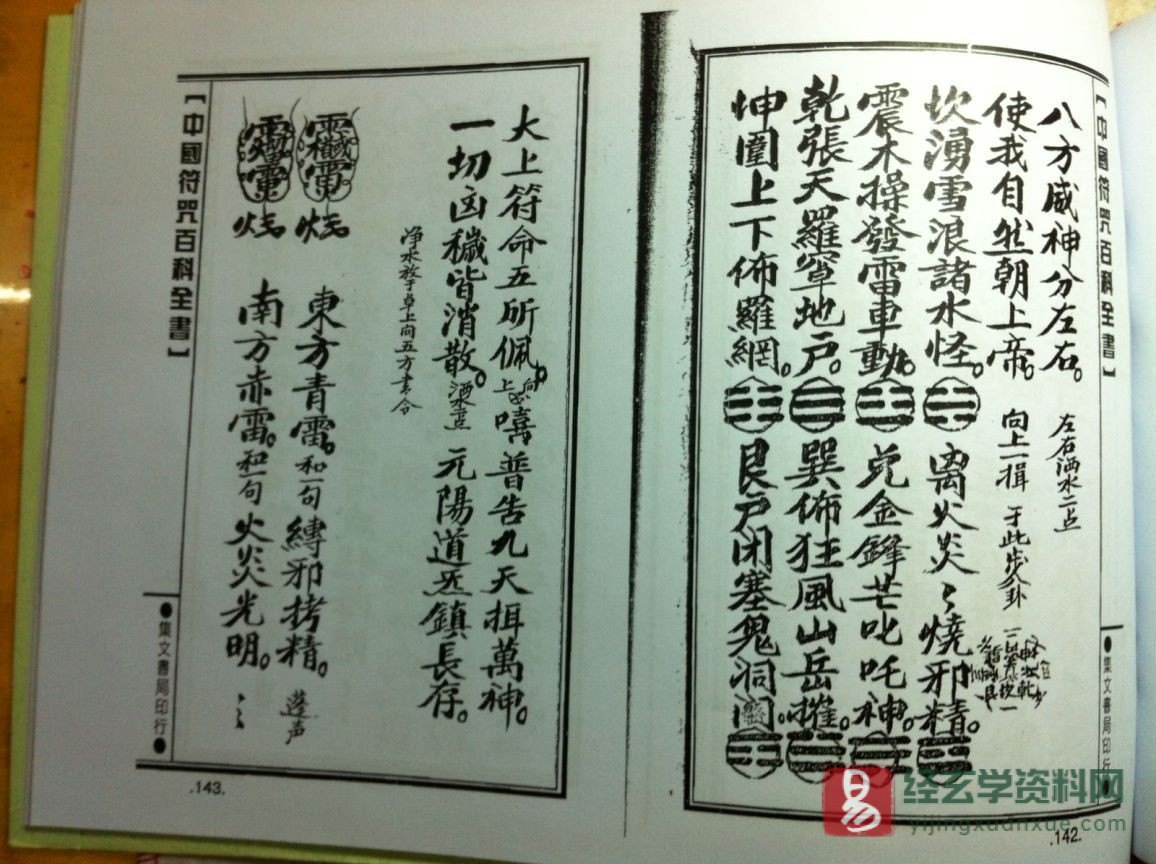 【中國符咒百科全書】
八方威神分左右。 左右洒水二点
使我自然朝上帝。 向上一揖 于此步八卦
坎湧雪浪諸水怪。 离火炎〻燒邪精。
震木操發雷車動。 兑金鋒芒叱吒神。
乾張天羅罩地户。 巽佈狂風山岳摧。
坤圍上下佈羅網。 艮户闭塞鬼洞
●集文書局印行●
.142.
大上符命五所佩。 嘻普告九天揖萬神。
一切凶穢皆消散。 元陽道炁鎮長存。
净水放于卓上向五方書令
東方青雷。和一句 縛邪拷精。
烧 南方赤雷。和一句 火炎光明。〻
烧
【中國符咒百科全書】
●集文書局印行●
.143.
易 经玄学资料网
yijingxuanxue.com